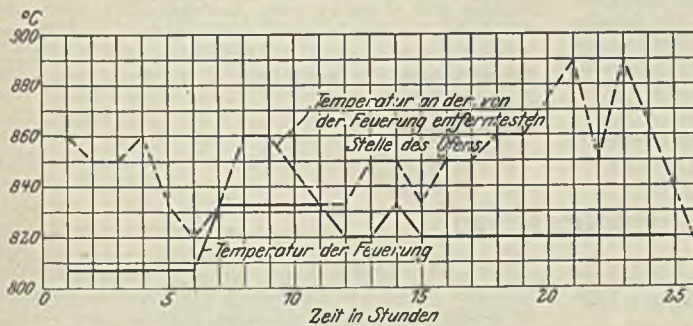 °C
900
880
860
840
820
800
Temperatur an der von
der Feuerung entferntesten
Stelle des Ofens
Temperatur der Feuerung
0 5 10 15 20 25
Zeit in Stunden